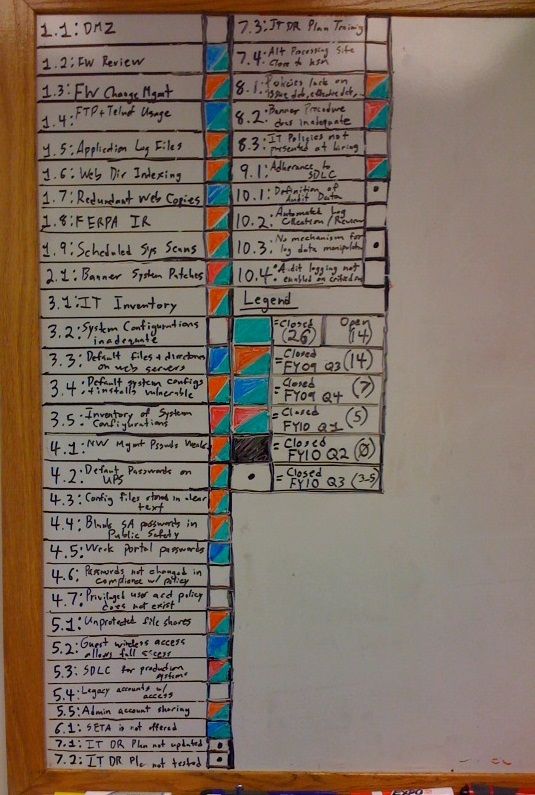 1.1: DMZ
1.2: FW Review
1.3: FW Change Mgmt
1.4: FTP + Telnet Usage
1.5: Application Log Files
1.6: Web Dir Indexing
1.7: Redundant Web Copies
1.8: FERPA IR
1.9: Scheduled Sys Scans
2.1: Banner System Patches
3.1: IT Inventory
3.2: System Configurations
inadequate
3.3: Default files + directories
on web servers
3.4: Default system configs
+ installs vulnerable
3.5: Inventory of System
Configurations
4.1: NW Mgmt Psswds Weak
4.2: Default Passwords on
UPS
4.3: Config files stored in clear
text
4.4: Blank SA passwords in
Public Safety
4.5: Weak Portal passwords
4.6: Passwords not changed in
compliance w/ policy
4.7: Privileged user acct policy
does not exist
5.1: Unprotected file shares
5.2: Guest wireless access
allows full access
5.3: SDLC for production
systems
5.4: Legacy accounts w/
access
5.5: Admin account sharing
6.1: SETA is not offered
7.1: IT DR Plan not updated
7.2: IT DR Plc not tested
7.3: IT DR Plan Training
7.4: Alt Processing Site
Close to
8.1: Policies lack an
issue date, effective date,
8.2: Banner Procedure
docs inadequate
8.3: IT Policies not
presented at hiring
9.1: Adherance to
SDLC
10.1: Definition of
Audit Data
10.2: Automated Log
Collection / Review
10.3: No mechanism for
log data manipulation
10.4: Audit logging not
enabled on
Legend
= Closed (26) Open (14)
= Closed FY09 Q3 (14)
= Closed FY09 Q4 (7)
= Closed FY10 Q1 (5)
= Closed FY10 Q2 (0)
= Closed FY10 Q3 (3-5)
EXPO